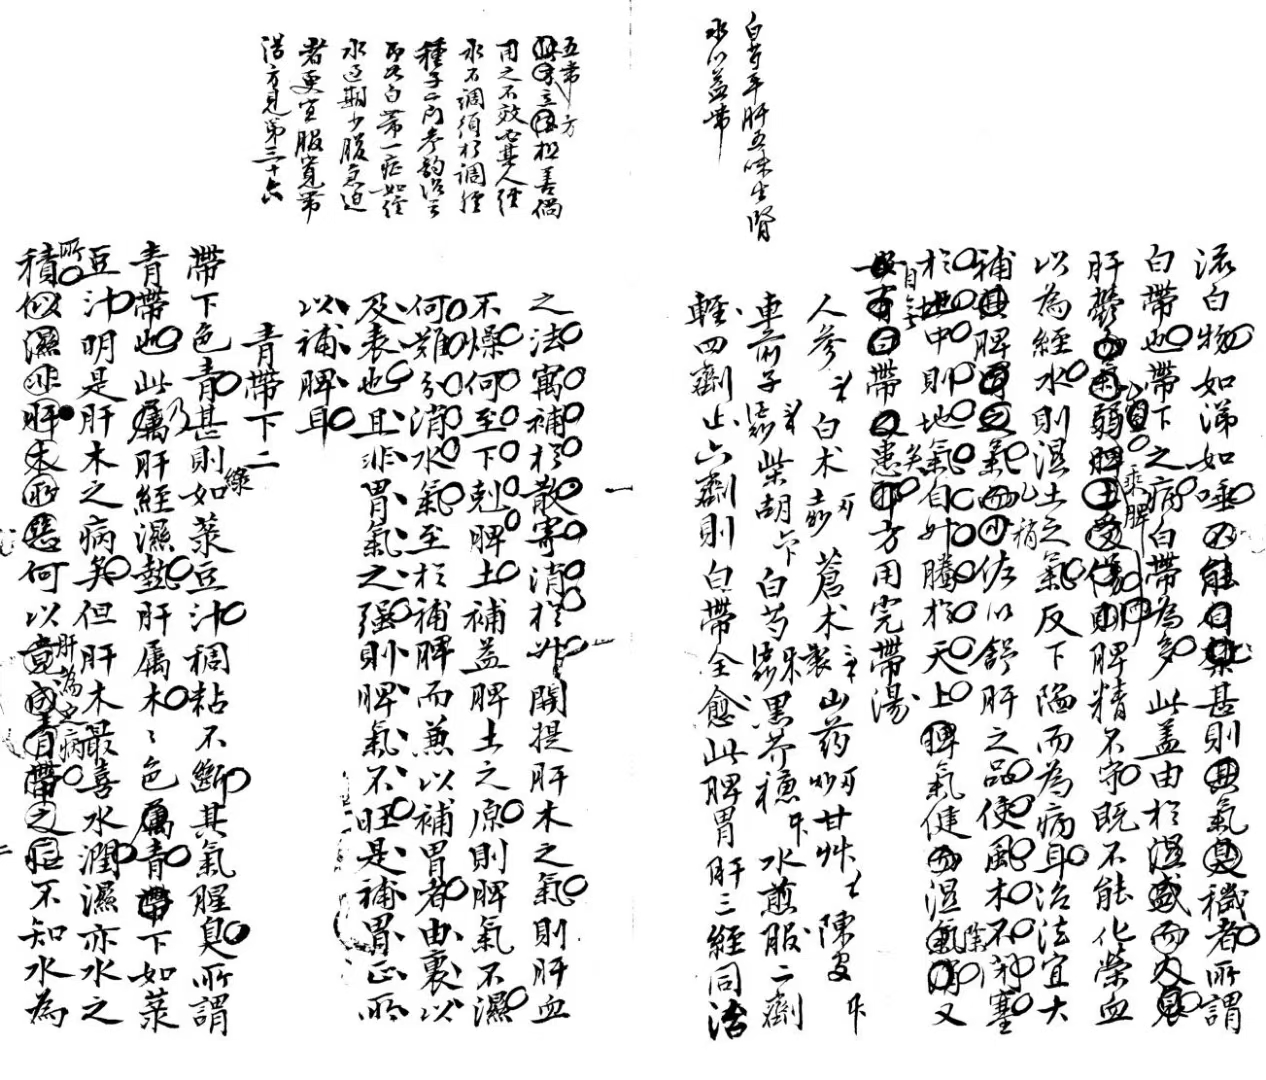 白芍平肝五味生腎
水以益帶
流白物如涕如唾不能自禁甚則其氣臭穢者所謂
白帶也帶下之病白帶為多此蓋由於濕盛而火衰
肝鬱而氣弱脾土受傷則脾精不守既不能化榮血
乘脾
以為經水則濕土之氣反下陷而為病耳治法宜大
補其脾胃之氣而少佐以舒肝之品使風木不閉塞
稍
於地中則地氣自升騰於天上脾氣健而濕氣消又
自無
除
矣
安有白帶之患耶方用完帶湯
人參 白术 蒼术 山药 甘艸 陳皮
車前子 柴胡 白芍 黑芥穗 水煎服二劑
輕四劑止六劑則白帶全愈此脾胃肝三經同治
五帶方
用之不效必其人經
水不調須於調經
種子二門參酌治之
即如白帶一症如經
水過期少腹急迫
者更宜服寬帶
湯方見第三十六
之法寓補於散寄消於升開提肝木之氣則肝血
不燥何至下剋脾土補益脾土之原則脾氣不濕
何難分消水氣至於補脾而兼以補胃者由裏以
及表也且非胃氣之强則脾氣不旺是補胃正所
以補脾耳
青帶下二
帶下色青甚則如菉豆汁稠粘不斷其氣腥臭所謂
綠
青帶也此屬肝經濕熱肝屬木木色屬青帶下如菉
乃
豆汁明是肝木之病矣但肝木最喜水潤濕亦水之
所
肝為之病
積似濕非肝木所惡何以竟成青帶之症不知水為